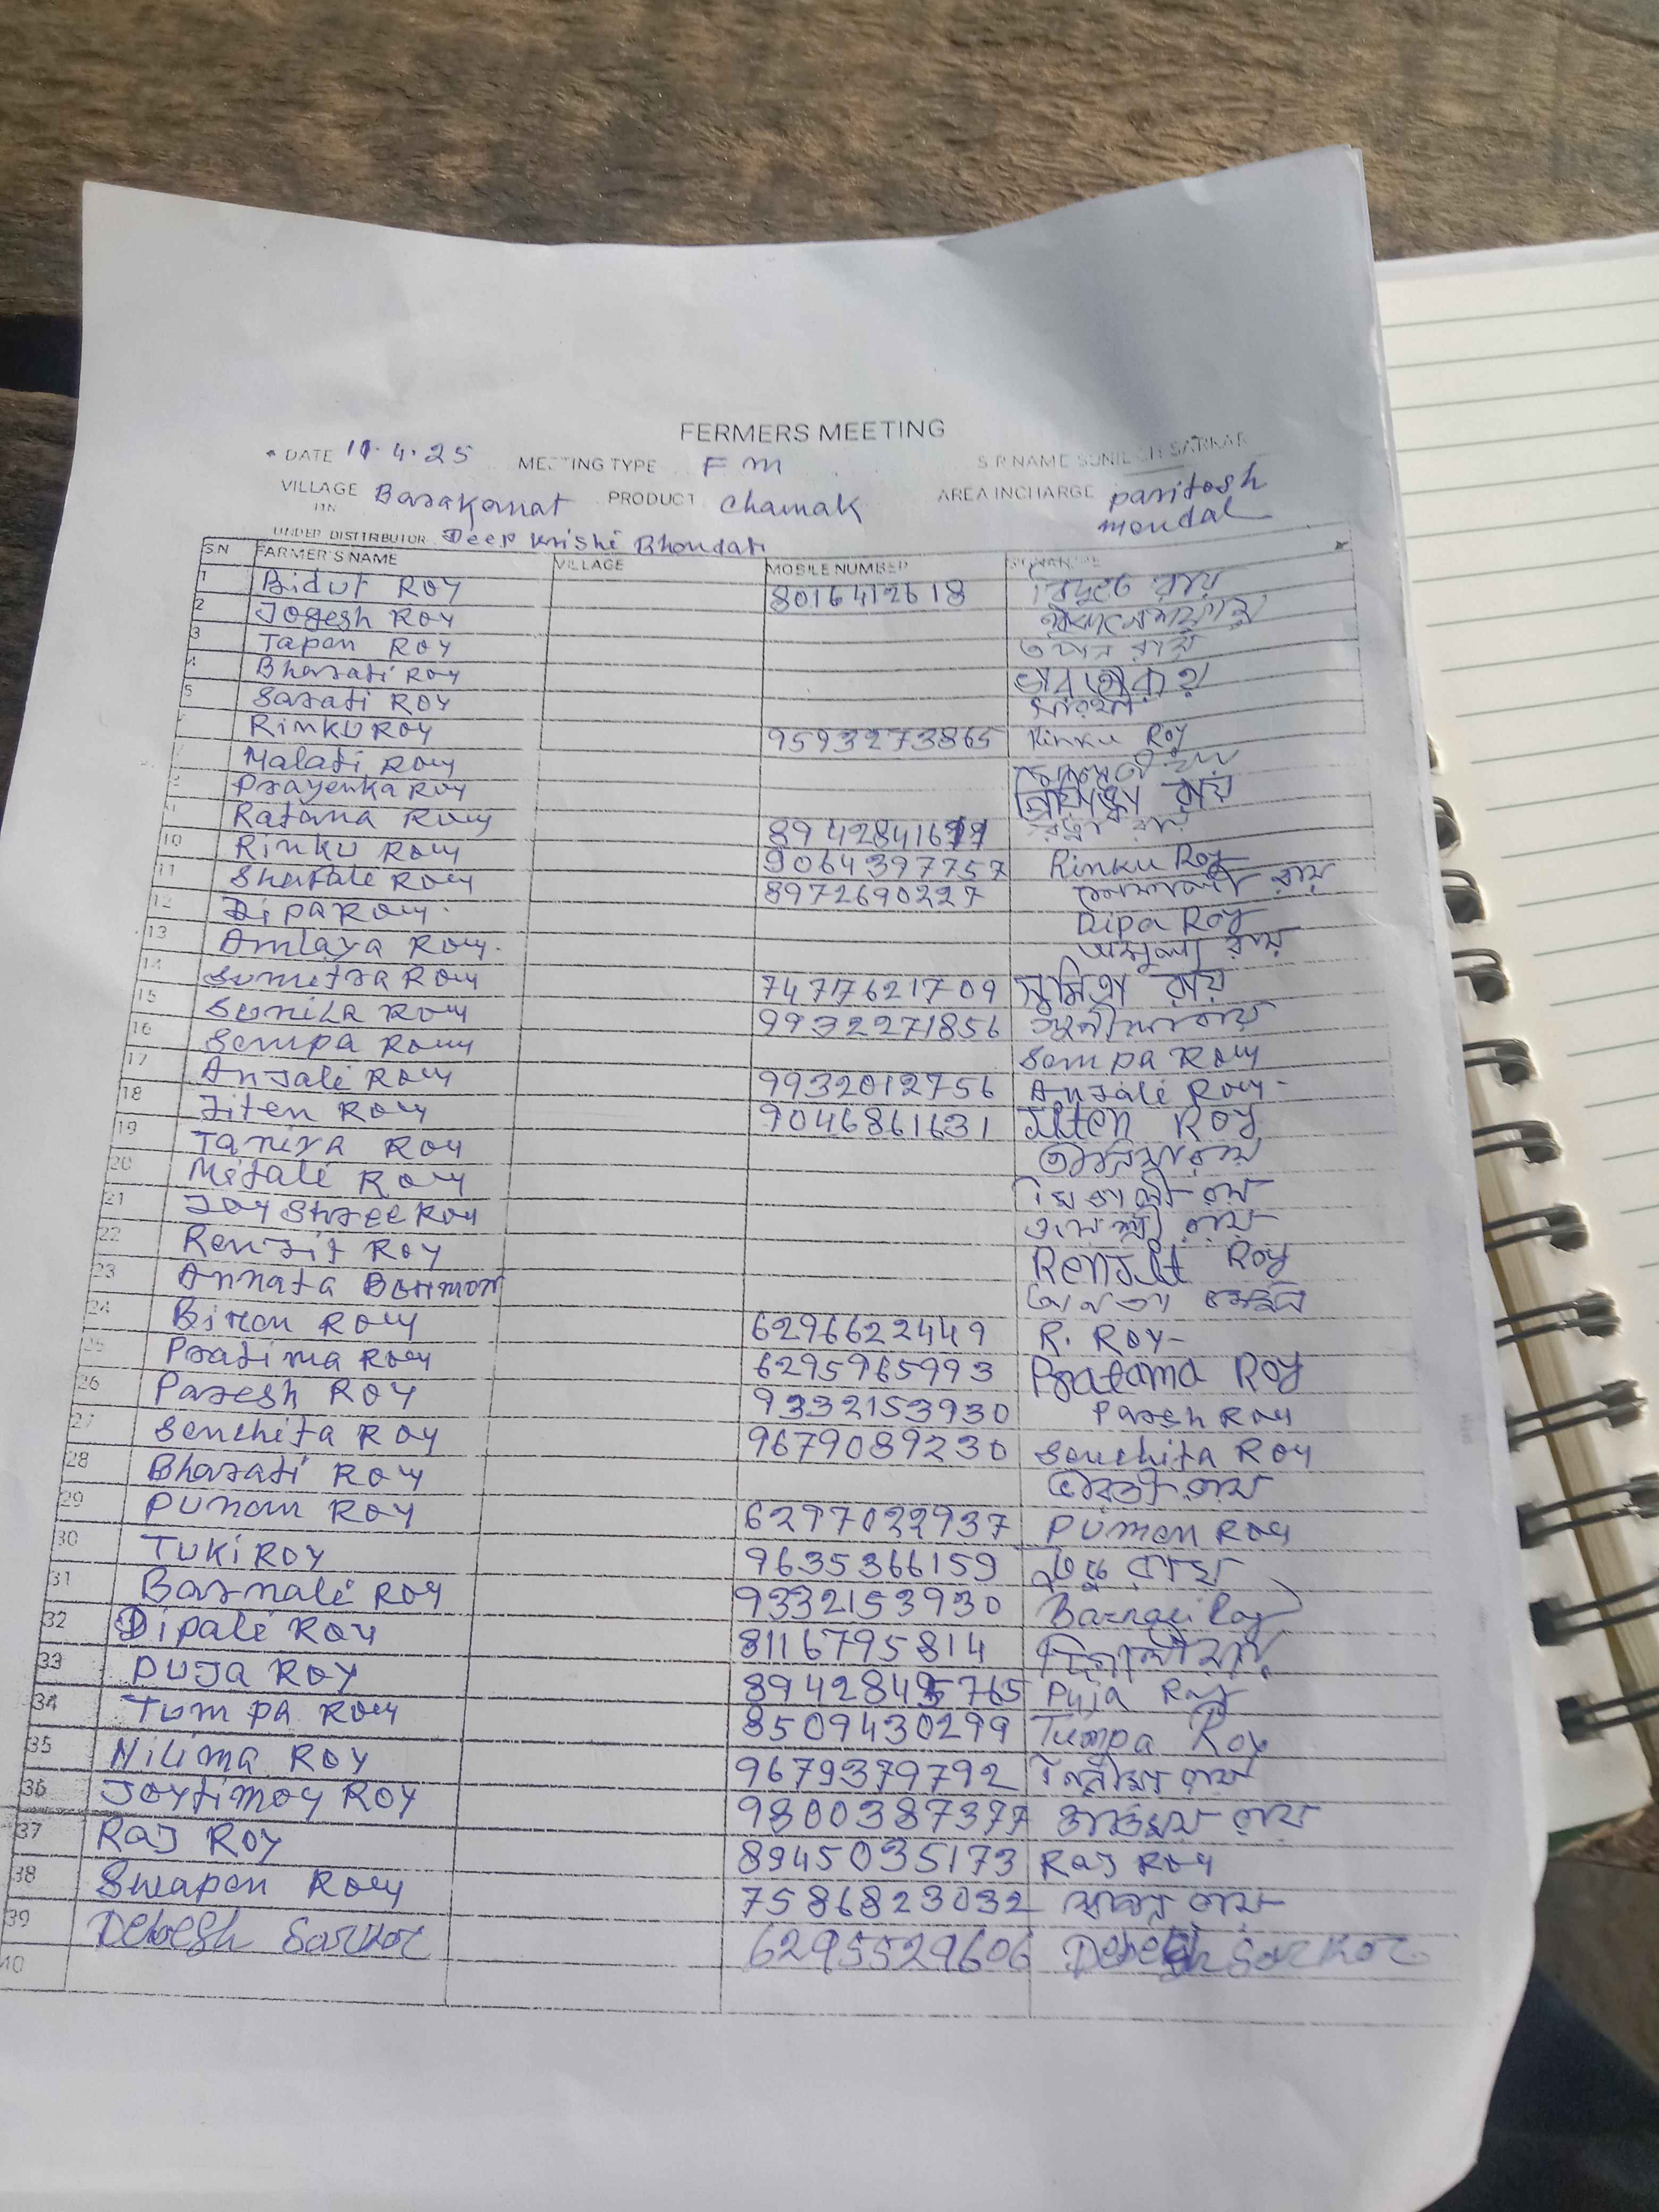 FERMERS MEETING
DATE 11.4.25 MEETING TYPE FM S R NAME SUNIL CH SARKAR
VILLAGE Barakamat PRODUCT Chamak AREA INCHARGE paritosh mondal
UNDER DISTTRIBUTOR Deep Krishi Bhondar
S.N FARMER'S NAME VILLAGE MOBILE NUMBER
1 Bidut ROY 8016412618 বিদুৎ রায়
2 Jogesh ROY
3 Tapan ROY তপন রায়
4 Bharati ROY ভারতী রায়
5 Sarati ROY সারথী
RINKU ROY 9593273865 Rinku Roy
Malati ROY
Prayenka ROY প্রিয়াঙ্কা রায়
Ratana ROY রত্না রায়
10 Rinku ROY 9064397757 Rinku Roy
11 Shefale ROY 8972690227 শেফালী রায়
12 Dipa ROY. Dipa Roy
13 Amlaya ROY. অমূল্য রায়
14 Sumitra ROY 7477621709 সুমিত্রা রায়
15 Sunila ROY 9932271856 সুনীলা রায়
16 Sompa ROY Sompa ROY
17 Anjale ROY 9932012756 Anjale ROY-
18 Jiten ROY 9046861631 Jiten Roy
19 Taniya ROY তানিয়া রায়
20 Metale ROY মিতালী রায়
21 Joy Shree ROY জয়শ্রী রায়
22 Renjit ROY Renjit Roy
23 Annata Barmon
24 Biren ROY 6296622449 R. ROY-
25 Pratima ROY 6295965993 Pratama Roy
26 Paresh ROY 9332153930 Paresh ROY
27 Senchita ROY 9679089230 Senchita ROY
28 Bharati ROY ভারতী রায়
29 Punam ROY 6297022937 Pumen ROY
30 TUKI ROY 9635366159 টুকু রায়
31 Barnale ROY 9332153930 Barnali Roy
32 Dipale ROY 8116795814 দিপালী রায়
33 PUJA ROY Puja Roy
34 Tumpa ROY 8509430299 Tumpa Roy
35 Nilima ROY 9679379792 নিলীমা রায়
36 Joytimoy ROY 9800387377
37 RAJ ROY 8945035173 RAJ ROY
38 Swapen ROY 7586823032 স্বপন রায়
39 Debesh Sarkar 6295529606 Debesh Sarkar
40